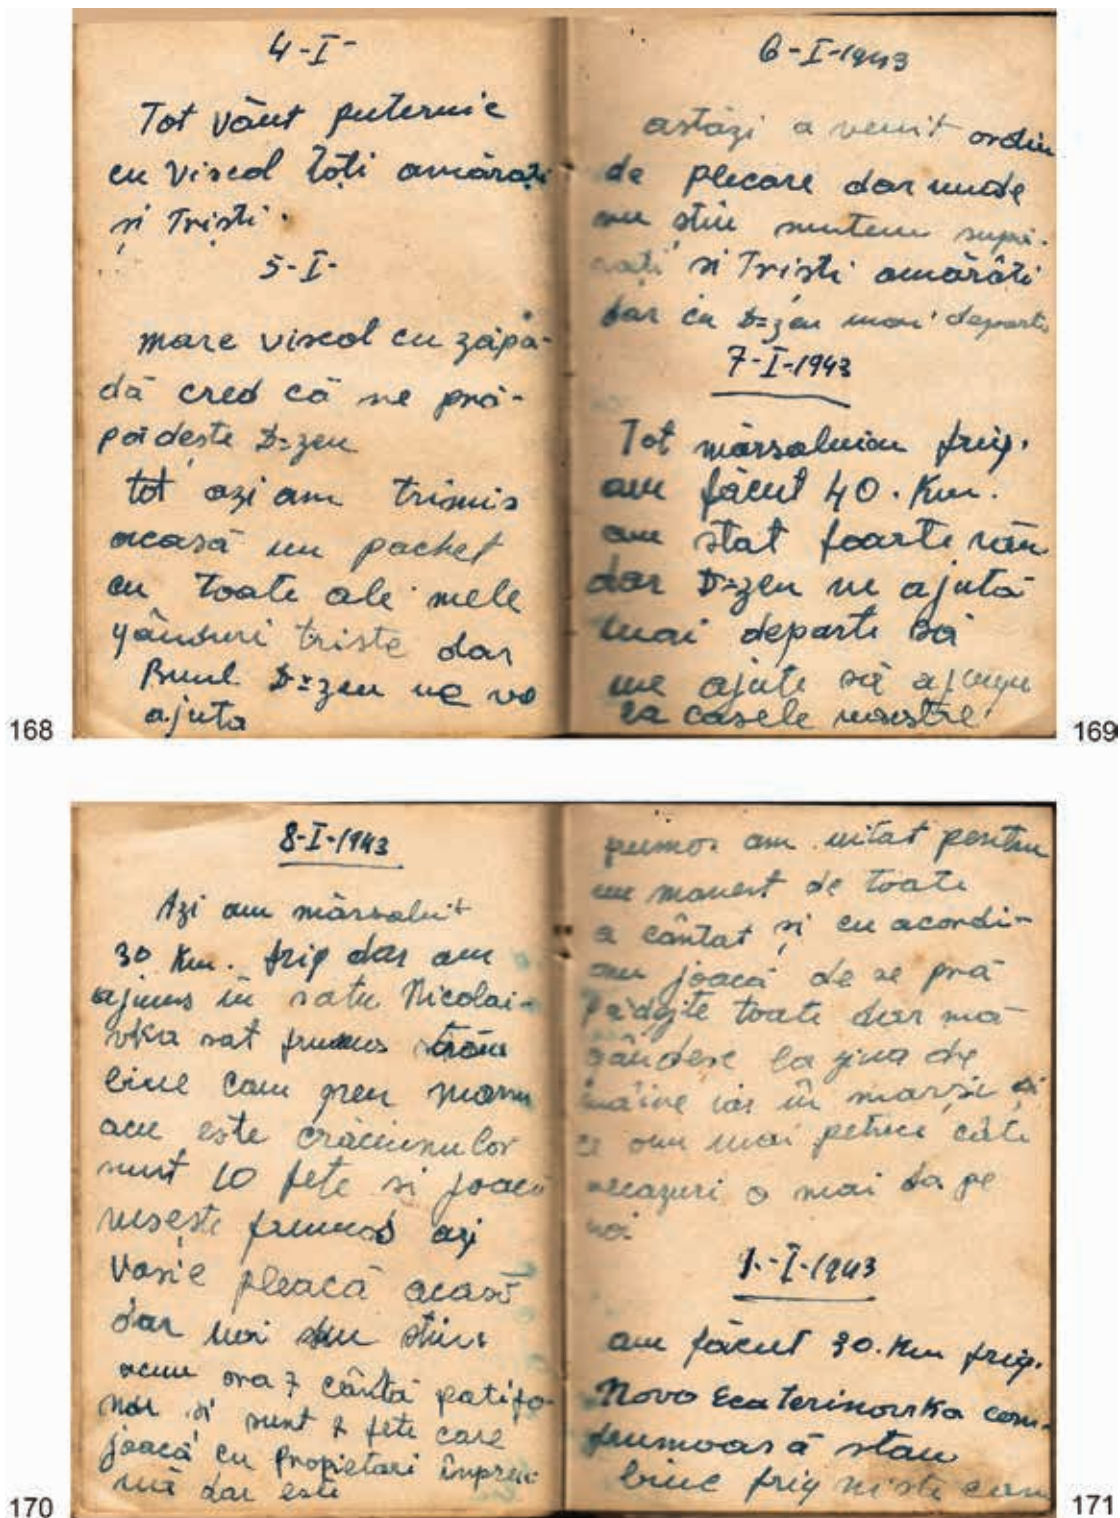 4-I-
Tot vânt puternic
cu viscol toți amărați
și Triști.
5-I-
mare viscol cu zăpa-
dă cred că ne pră-
pădește D=zeu
tot azi am trimis
acasă un pachet
cu toate ale mele
gânduri triste dar
Bunul D=zeu ne va
ajuta
168
6-I-1943
astăzi a venit ordin
de plecare dar unde
nu știu suntem supă-
rați si Tristi amărâti
dar cu D=zeu mai departe
7-I-1943
Tot mărsăluiau frig.
am făcut 40. Km.
am stat foarte rău
dar D=zeu ne ajută
mai departe să
ne ajute să ajungu
la casele noastre
169
8-I-1943
Azi am mărsaluit
30 Km. frig dar am
ajuns în satu Nicolai-
vka sat frumos stăm
bine cam greu
acu este crăciunu lor
sunt 10 fete si joacă
rusește frumos azi
Vasile pleacă acasă
dar noi nu știu
acum ora 7 cântă patifo-
nul și sunt 2 fete care
joacă cu propietari înpreu-
nă dar este
170
frumos am uitat pentru
un moment de toate
a cântat și cu acordi-
on joacă de se pră
pădește toate dar mă
gândesc la ziua de
mâine iar în marși și
ce om mai petrece câte
necazuri o mai da pe
noi
9.-I-1943
am făcut 30. Km frig.
Novo Ecaterinovka com.
frumoasă stau
bine frig niste cam
171